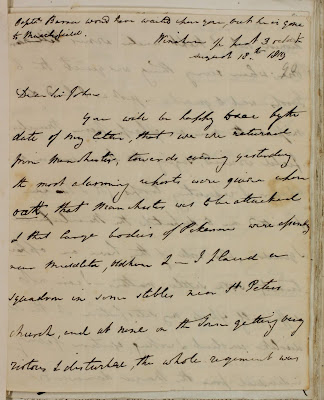 Captn. Barron would have waited upon you, but he is gone
to Macclesfield.
Wilmslow ½ past 3 o'clock
August 18th 1819
Dear Sir John
You will be happy to see by the
date of my letter, that we are returned
from Manchester, towards evening yesterday
the most alarming reports were given upon
oath, that Manchester was to be attacked
& that large bodies of Pikemen were
near Middleton, Oldham &c - I placed a
squadron in some stables near St Peters
church, and at nine on the Town getting very
riotous & disturbed, the whole regiment was